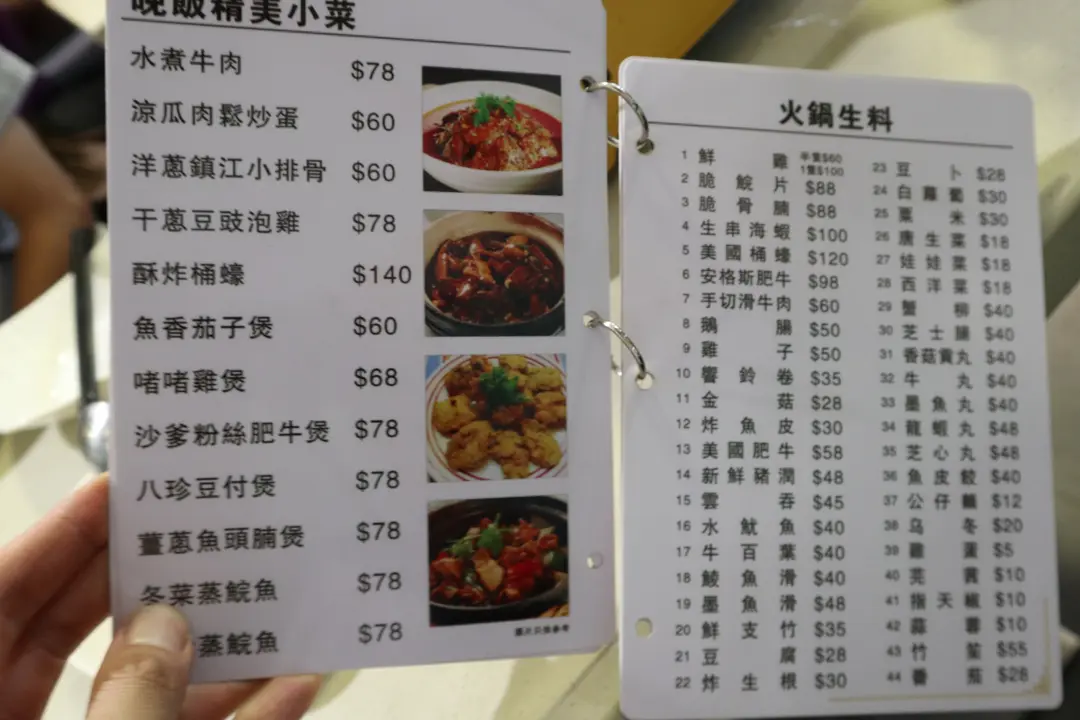 晚飯精美小菜
水煮牛肉 $78
涼瓜肉鬆炒蛋 $60
洋蔥鎮江小排骨 $60
干蔥豆豉泡雞 $78
酥炸桶蠔 $140
魚香茄子煲 $60
啫啫雞煲 $68
沙爹粉絲肥牛煲 $78
八珍豆付煲 $78
薑蔥魚頭腩煲 $78
冬菜蒸鯇魚 $78
蒸鯇魚 $78
圖片只供參考
火鍋生料
1 鮮雞 半隻$60 1隻$100
2 脆鯇片 $88
3 脆骨腩 $88
4 生串海蝦 $100
5 美國桶蠔 $120
6 安格斯肥牛 $98
7 手切滑牛肉 $60
8 鵝腸 $50
9 雞子 $50
10 響鈴卷 $35
11 金菇 $28
12 炸魚皮 $30
13 美國肥牛 $58
14 新鮮豬潤 $48
15 雲吞 $45
16 水魷魚 $40
17 牛百葉 $40
18 鯪魚滑 $40
19 墨魚滑 $48
20 鮮支竹 $35
21 豆腐 $28
22 炸生根 $30
23 豆卜 $28
24 白蘿蔔 $30
25 粟米 $30
26 唐生菜 $18
27 娃娃菜 $18
28 西洋菜 $18
29 蟹柳 $40
30 芝士腸 $40
31 香菇貢丸 $40
32 牛丸 $40
33 墨魚丸 $40
34 龍蝦丸 $48
35 芝心丸 $48
36 魚皮餃 $40
37 公仔麵 $12
38 乌冬 $20
39 雞蛋 $5
40 芫茜 $10
41 指天椒 $10
42 蒜蓉 $10
43 竹笙 $55
44 番茄 $28